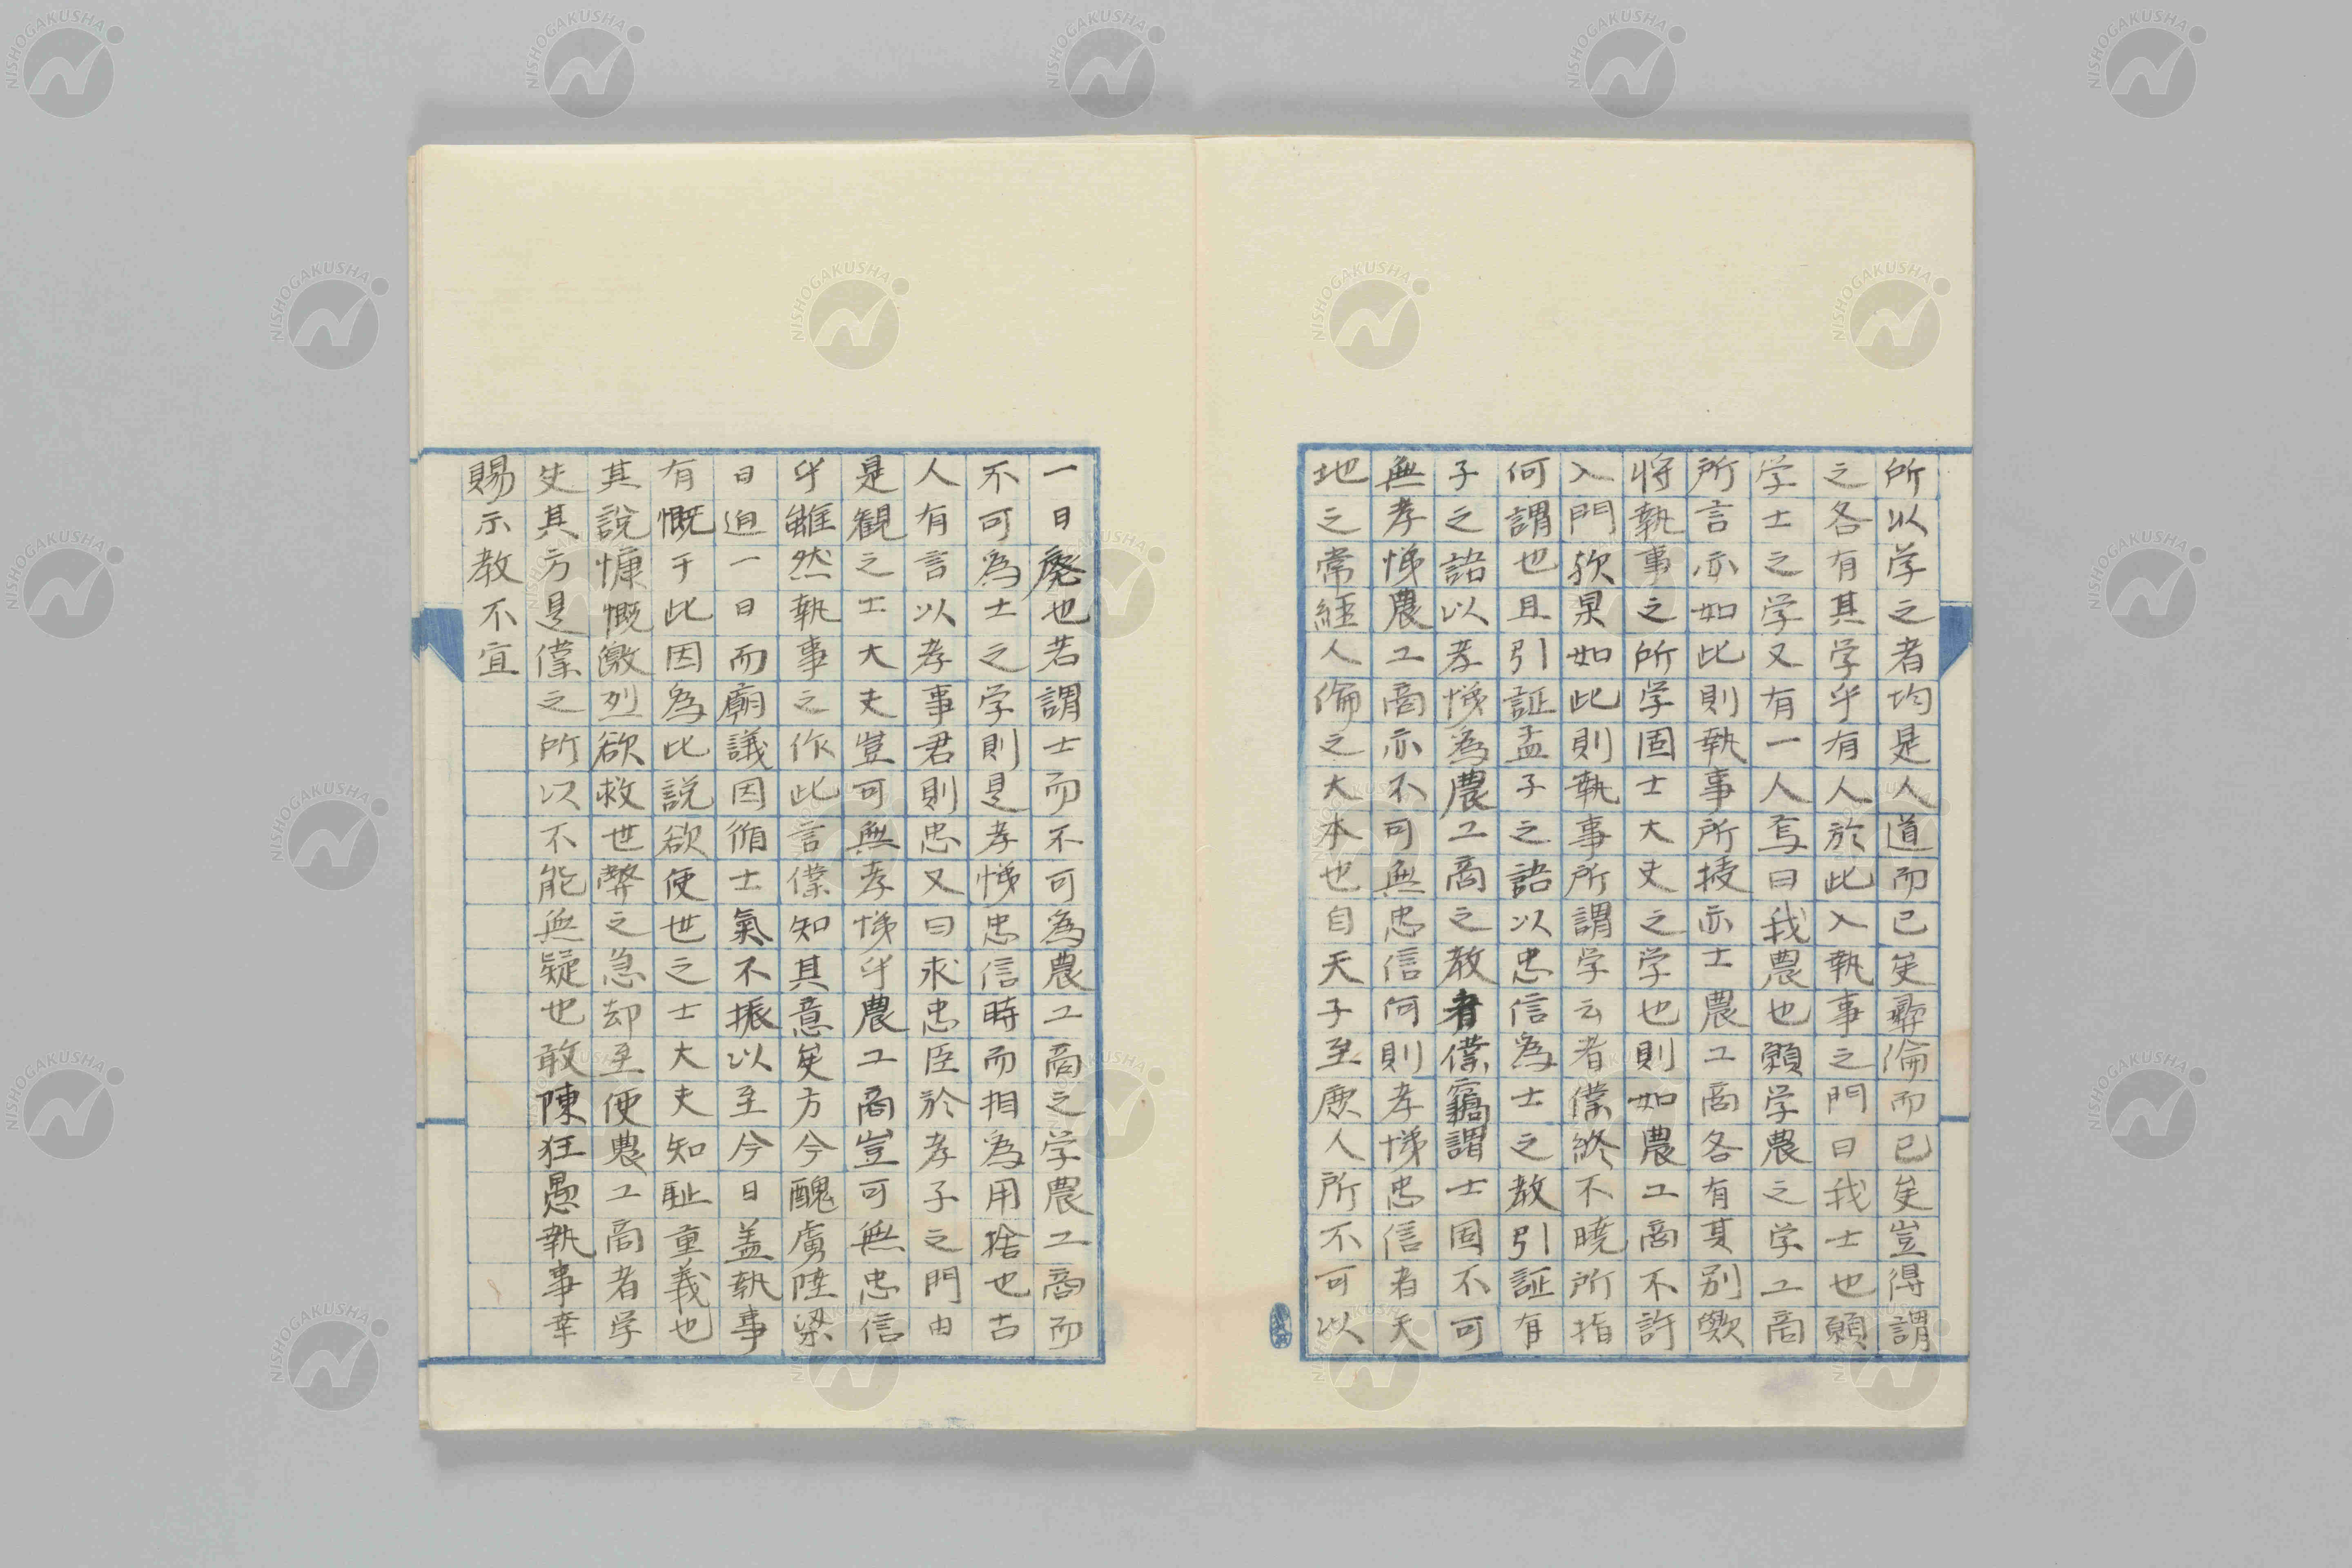 所以学之者均是人道而已矣彛倫而已矣豈得謂
之各有其学乎有人於此入執事之門曰我士也願
学士之学又有一人焉曰我農也願学農之学工商
所言亦如此則執事所授亦士農工商各有其別歟
将執事之所学固士大夫之学也則如農工商不許
入門歟果如此則執事所謂学云者僕終不曉所指
何謂也且引証孟子之語以忠信為士之教引証有
子之語以孝悌為農工商之教者僕竊謂士固不可
無孝悌農工商亦不可無忠信何則孝悌忠信者天
地之常経人倫之大本也自天子至庶人所不可以
一日廃也若謂士而不可為農工商之学農工商而
不可為士之学則是孝悌忠信時而相為用捨也古
人有言以孝事君則忠又曰求忠臣於孝子之門由
是観之士大夫豈可無孝悌乎農工商豈可無忠信
乎雖然執事之作此言僕知其意矣方今醜虜陸梁
日迫一日而廟議因循士氣不振以至今日盖執事
有慨于此因為比説欲使世之士大夫知耻重義也
其說慷慨激烈欲救世弊之急却至使農工商者学
失其方是僕之所以不能無疑也敢陳狂愚執事幸
賜示教不宜
NISHOGAKUSHA